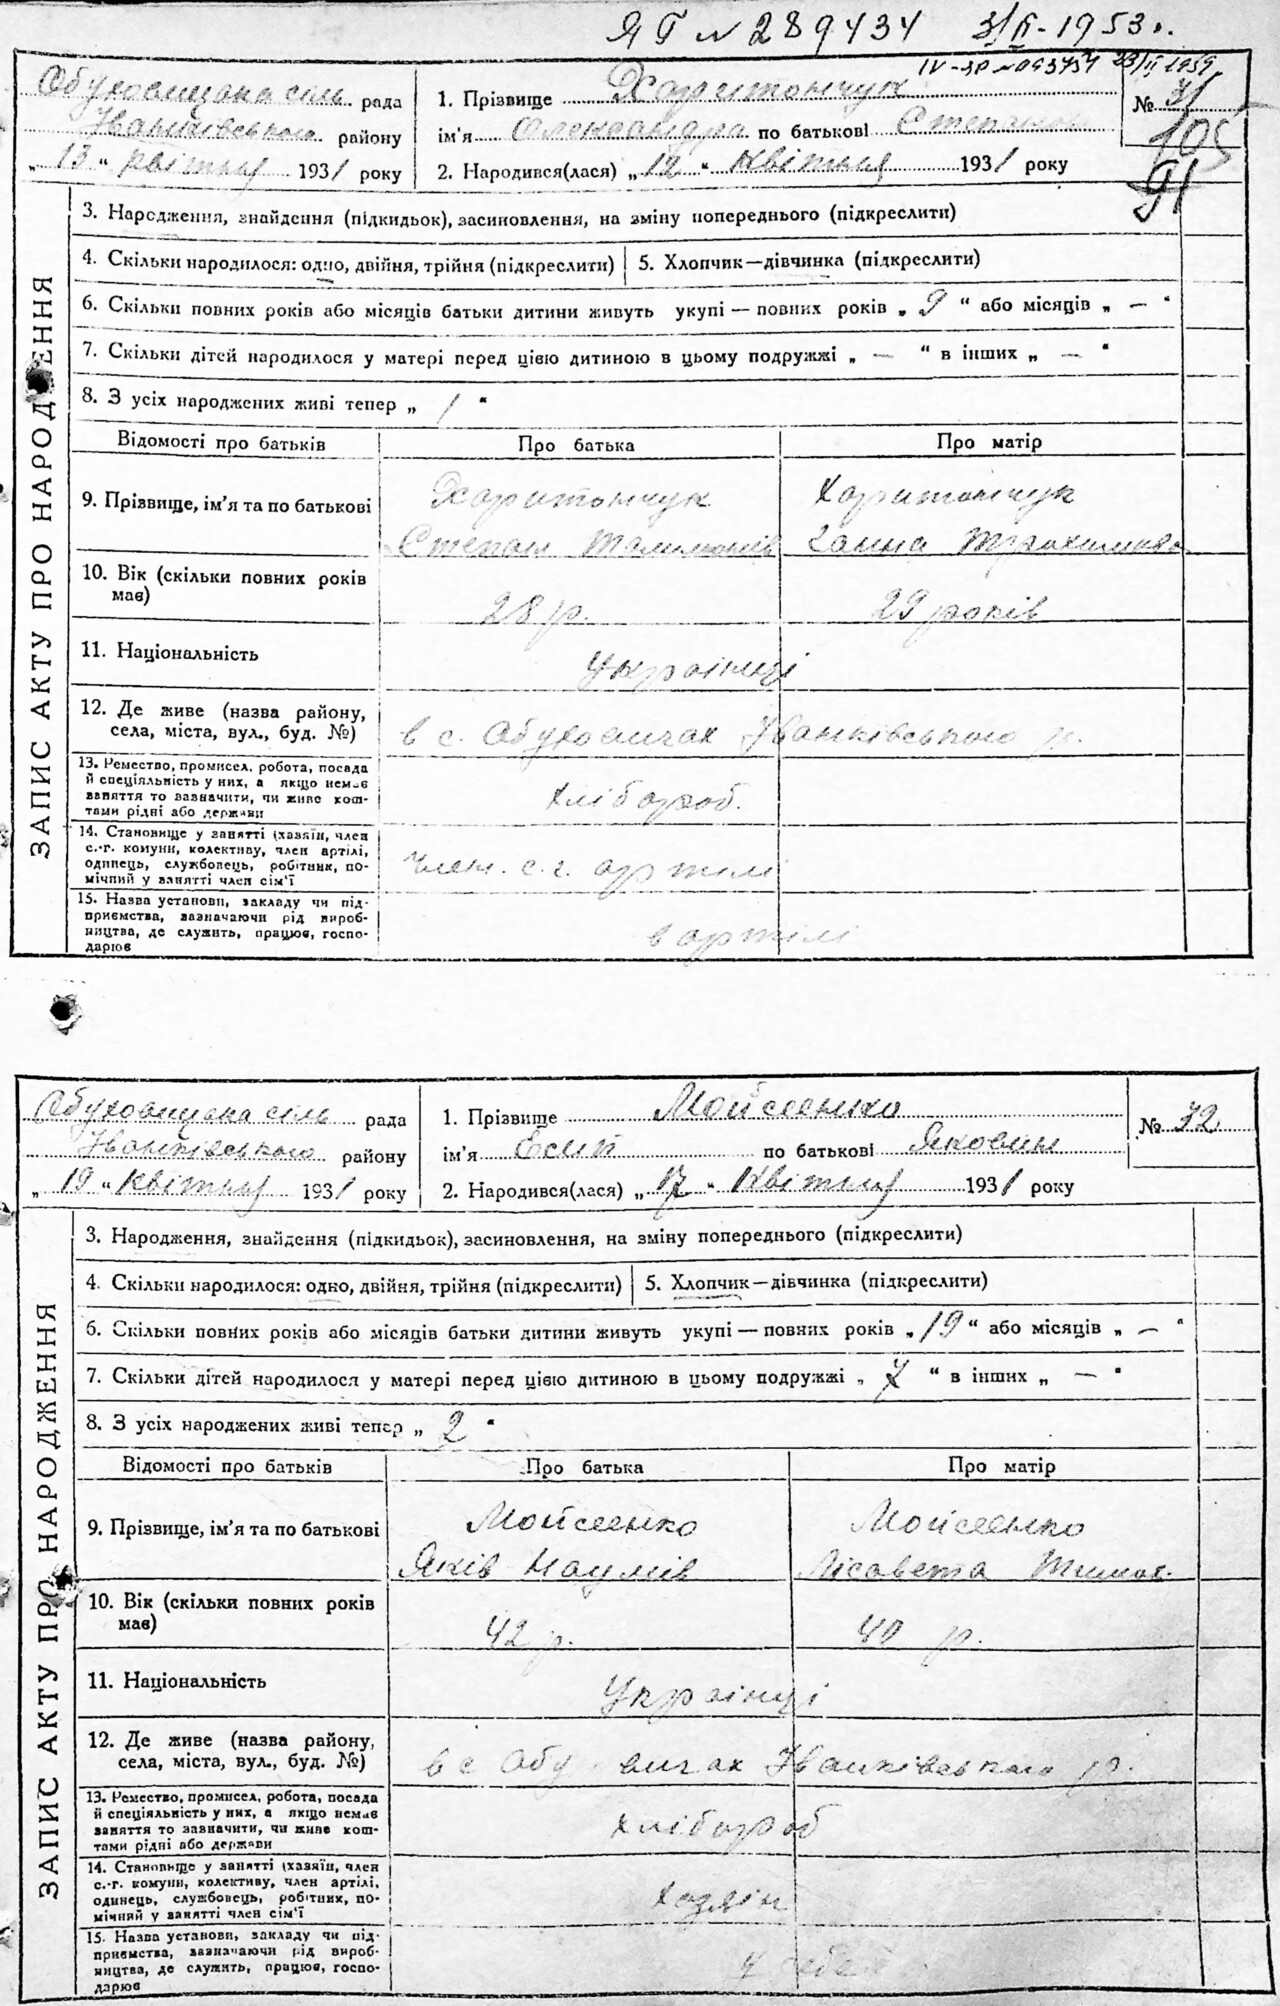 ЯГ № 289434 3/II-1953 р.
IV-ЯР № 093454 23/II 1959
Обуховицька сіль. рада
Іванківського району
„13“ квітня 1931 року
1. Прізвище Харитончук
ім'я Олександра по батькові Степанов
2. Народився(лася) „12“ квітня 1931 року
№ 71
105
91
ЗАПИС АКТУ ПРО НАРОДЖЕННЯ
3. Народження, знайдення (підкидьок), засиновлення, на зміну попереднього (підкреслити)
4. Скільки народилося: одно, двійня, трійня (підкреслити)
5. Хлопчик—дівчинка (підкреслити)
6. Скільки повних років або місяців батьки дитини живуть укупі — повних років „ 9 “ або місяців „ — “
7. Скільки дітей народилося у матері перед цією дитиною в цьому подружжі „ — “ в інших „ — “
8. З усіх народжених живі тепер „ 1 “
Відомості про батьків
Про батька
Про матір
9. Прізвище, ім'я та по батькові
Харитончук
Степан
Харитончук
Ганна
10. Вік (скільки повних років
має)
28 р.
29 років
11. Національність
Українці
12. Де живе (назва району,
села, міста, вул., буд. №)
в с. Обуховичах Іванківського р.
13. Ремество, промисел, робота, посада
й спеціяльність у них, а якщо немає
заняття то зазначити, чи живе кош-
тами рідні або держави
хлібороб.
14. Становище у занятті (хазяїн, член
с.-г. комуни, колективу, член артілі,
одинець, службовець, робітник, по-
мічний у занятті член сім'ї
член. с. г. артілі
15. Назва установи, закладу чи під-
приємства, зазначаючи рід вироб-
ництва, де служить, працює, госпо-
дарює
в артілі
Обуховицька сіль рада
Іванківського району
„19“ квітня 1931 року
1. Прізвище Мойсеенко
ім'я Есип по батькові Яковин
2. Народився(лася) „17“ квітня 1931 року
№ 72
ЗАПИС АКТУ ПРО НАРОДЖЕННЯ
3. Народження, знайдення (підкидьок), засиновлення, на зміну попереднього (підкреслити)
4. Скільки народилося: одно, двійня, трійня (підкреслити)
5. Хлопчик—дівчинка (підкреслити)
6. Скільки повних років або місяців батьки дитини живуть укупі — повних років „ 19 “ або місяців „ — “
7. Скільки дітей народилося у матері перед цією дитиною в цьому подружжі „ “ в інших „ — “
8. З усіх народжених живі тепер „ 2 “
Відомості про батьків
Про батька
Про матір
9. Прізвище, ім'я та по батькові
Мойсеенко
Яків Наумів
Мойсеенко
Лісавета Тимох.
10. Вік (скільки повних років
має)
42 р.
40 р.
11. Національність
Українці
12. Де живе (назва району,
села, міста, вул., буд. №)
в с Обу вичах Іванківського р.
13. Ремество, промисел, робота, посада
й спеціяльність у них, а якщо немає
заняття то зазначити, чи живе кош-
тами рідні або держави
хлібороб
14. Становище у занятті (хазяїн, член
с.-г. комуни, колективу, член артілі,
одинець, службовець, робітник, по-
мічний у занятті член сім'ї
хозяін
15. Назва установи, закладу чи під-
приємства, зазначаючи рід вироб-
ництва, де служить, працює, госпо-
дарює
у себе